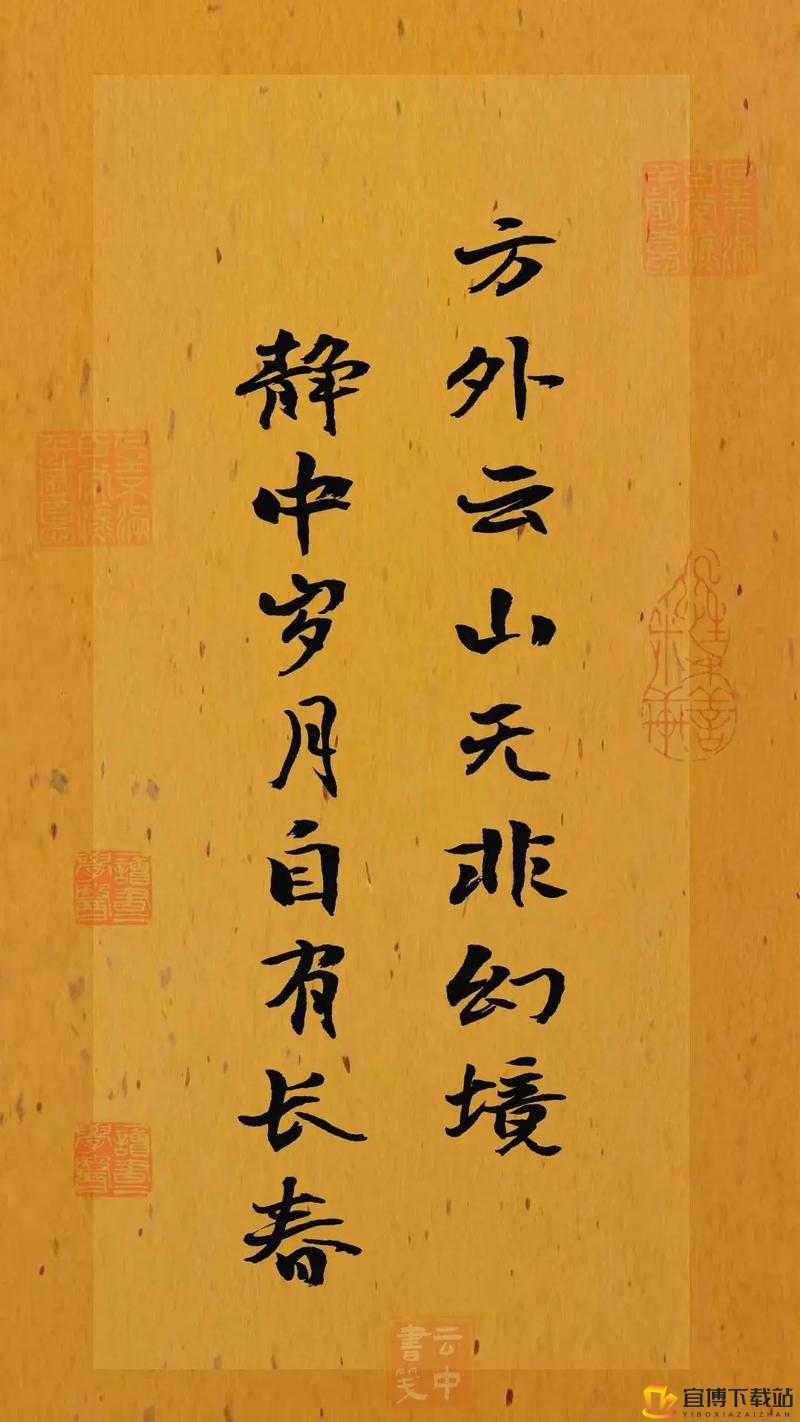 方外云山无非幻境
静中岁月自有长春
云中
書笺
宜博下载站
YIBOXIAZAIZHAN